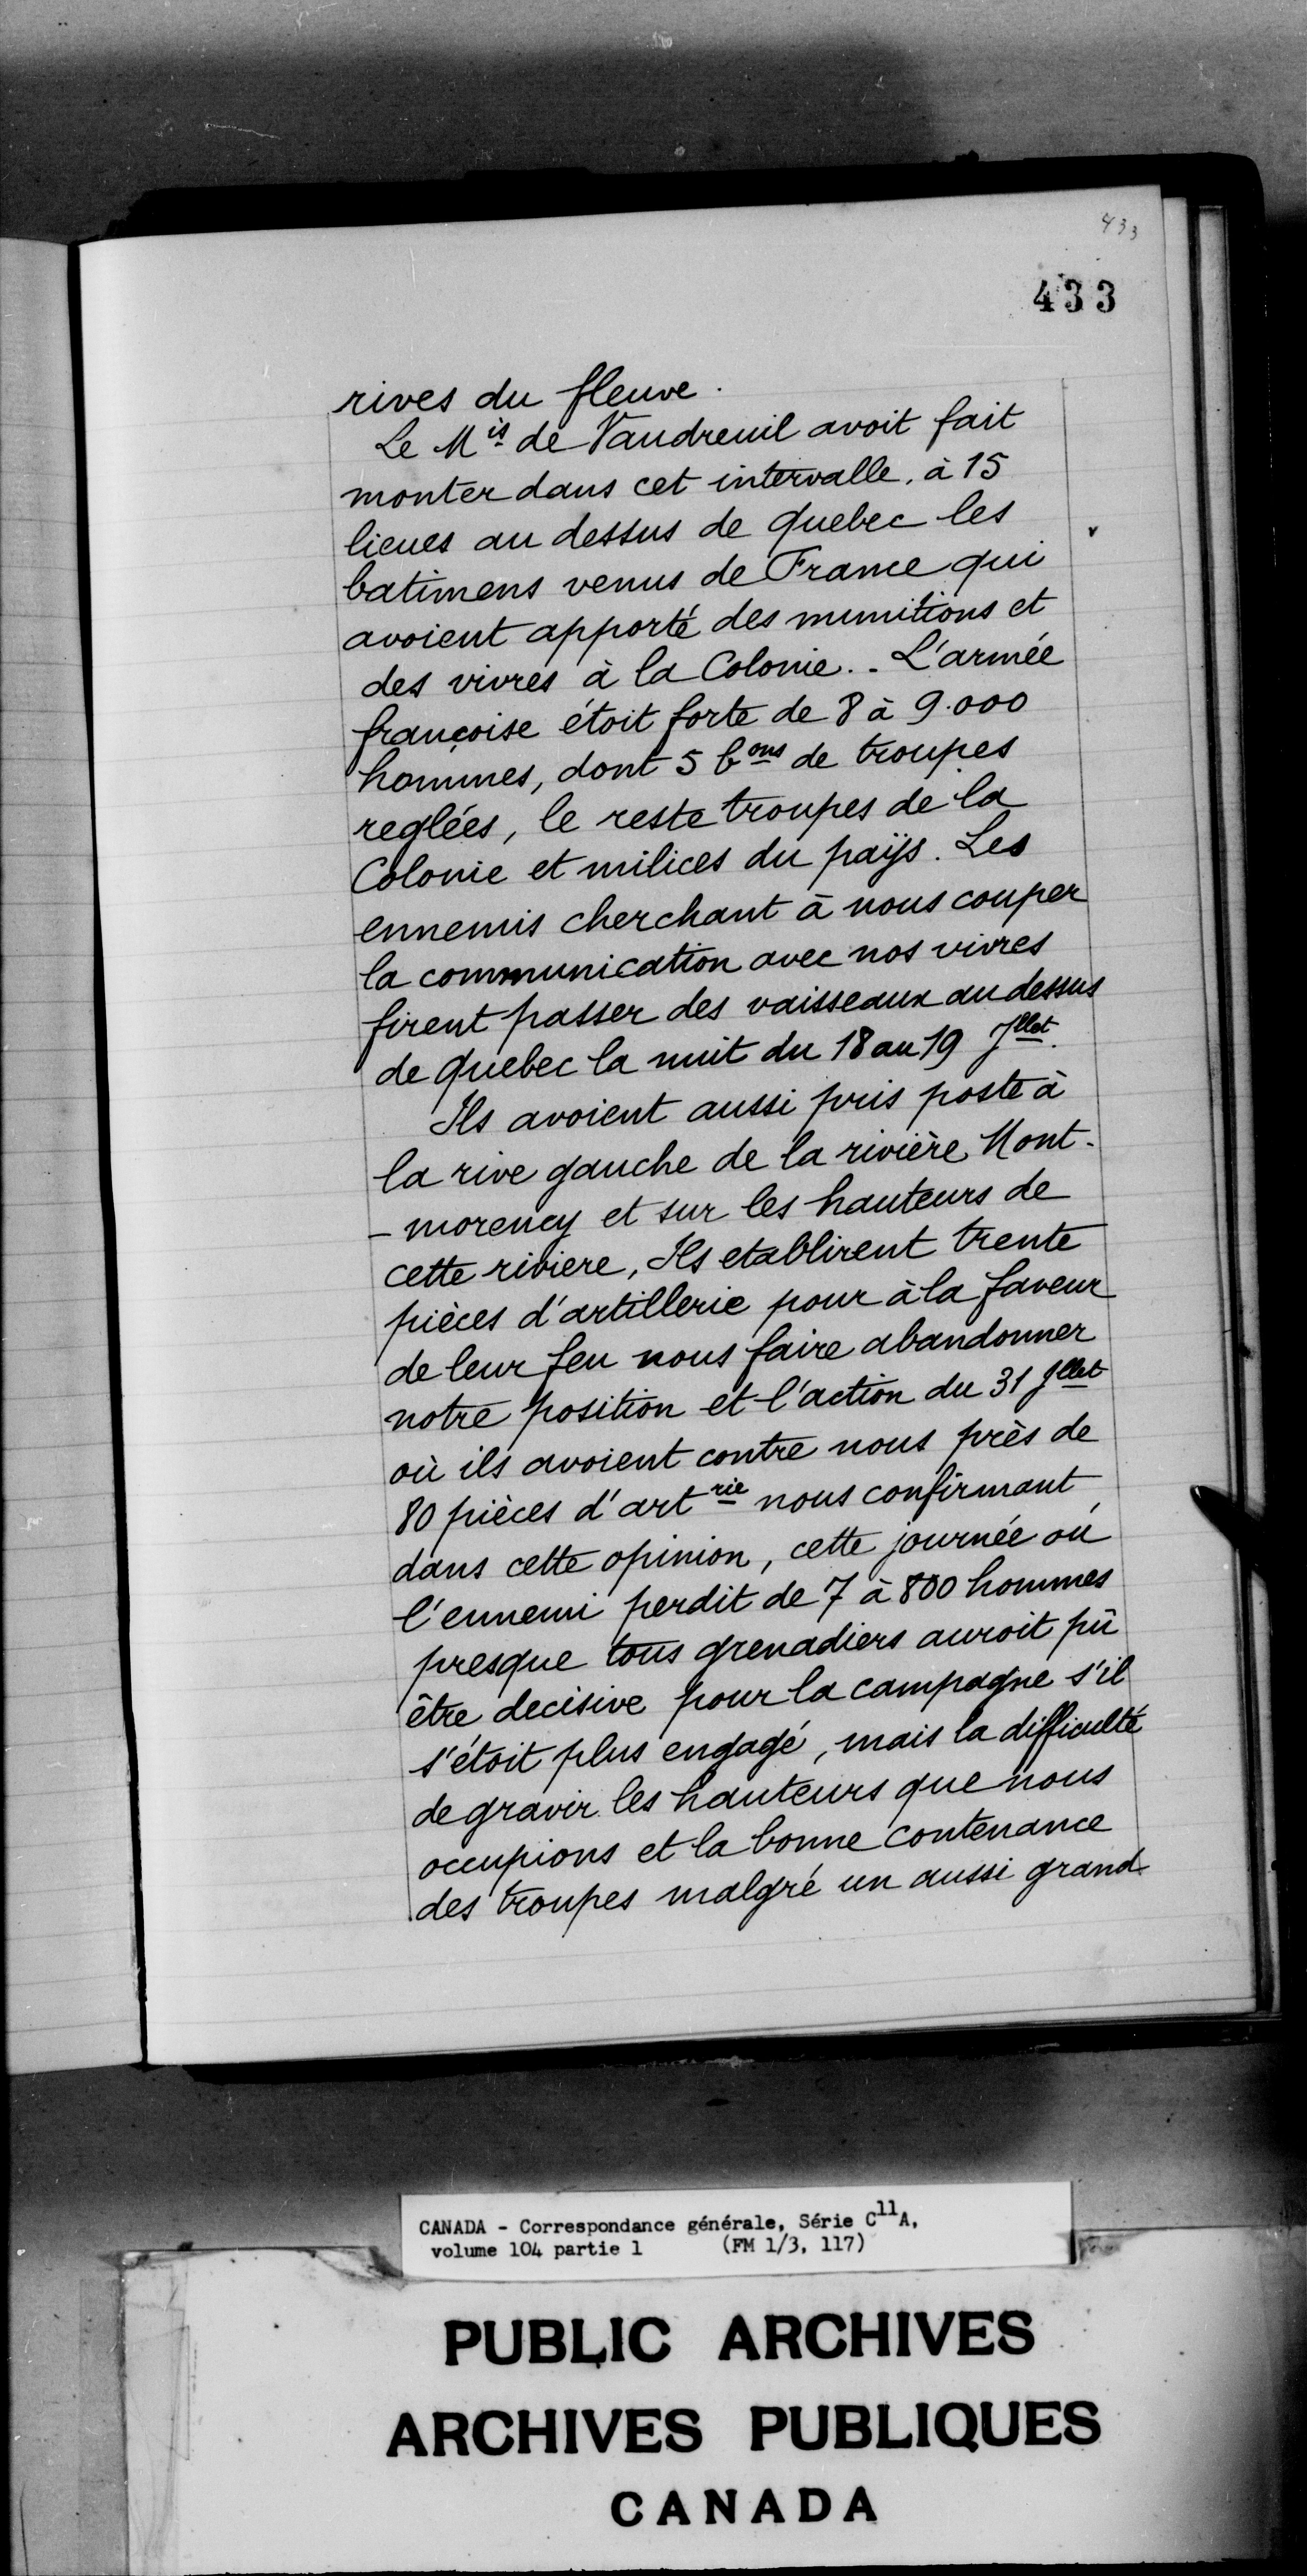 433
433
rives du fleuve.
Le Mis de Vaudreuil avoit fait
monter dans cet intervalle, à 15
lieues au dessus de quebec les
batimens venus de France qui
avoient apporté des munitions et
des vivres à la Colonie.. L'armée
françoise étoit forte de 8 à 9.000
hommes, dont 5 bons de troupes
reglées, le reste troupes de la
Colonie et milices du païjs. Les
ennemis cherchant à nous couper
la communication avec nos vivres
firent passer des vaisseaux au dessus
de quebec la nuit du 18 au 19 Jllet.
Ils avoient aussi pris poste à
la rive gauche de la rivière Mont-
-morency et sur les hauteurs de
cette riviere, Ils etablirent trente
pièces d'artillerie pour à la faveur
de leur feu nous faire abandonner
notre position et l'action du 31 Jllet
où ils avoient contre nous près de
80 pièces d'artrie nous confirmant
dans cette opinion, cette journée où
l'ennemi perdit de 7 à 800 hommes
presque tous grenadiers auroit pû
être decisive pour la campagne s'il
s'étoit plus engagé, mais la difficulté
de gravir les hauteurs que nous
occupions et la bonne contenance
des troupes malgré un aussi grand
CANADA - Correspondance générale, Série C11A,
volume 104 partie 1 (FM 1/3, 117)
PUBLIC ARCHIVES
ARCHIVES PUBLIQUES
CANADA